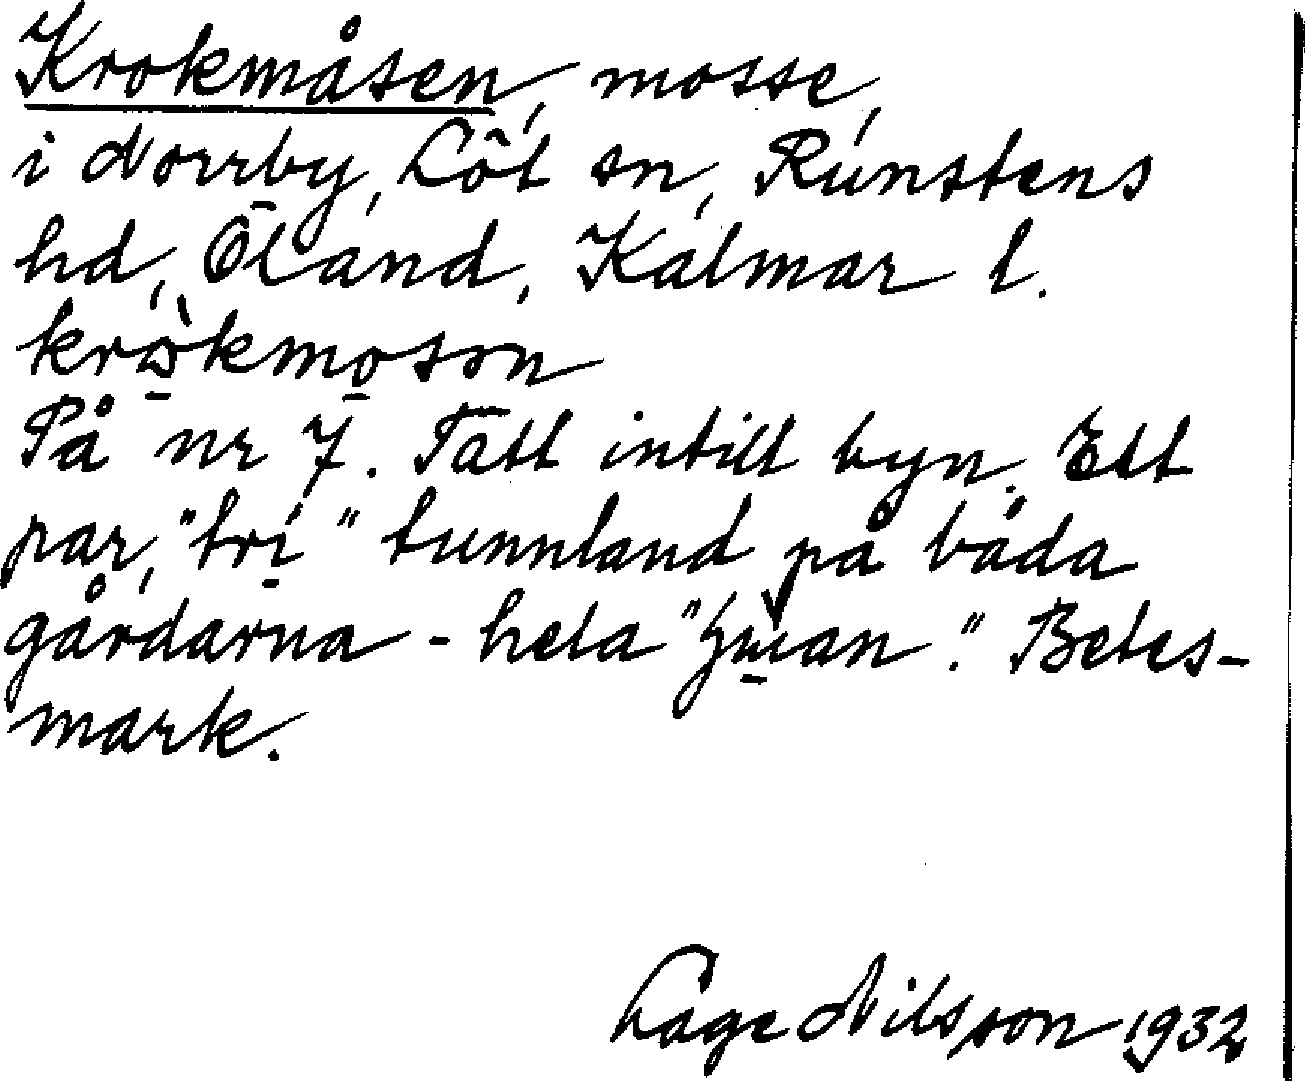 Krokmåsen, mosse,
i Norrby, Löt sn, Runstens
hd, Öland, Kalmar l.
krọ̀kmọson
På nr 7. Tätt intill byn. Ett
par, "tri" tunnland på båda
gårdarna - hela Betes-
mark.
Lage Nilsson 1932